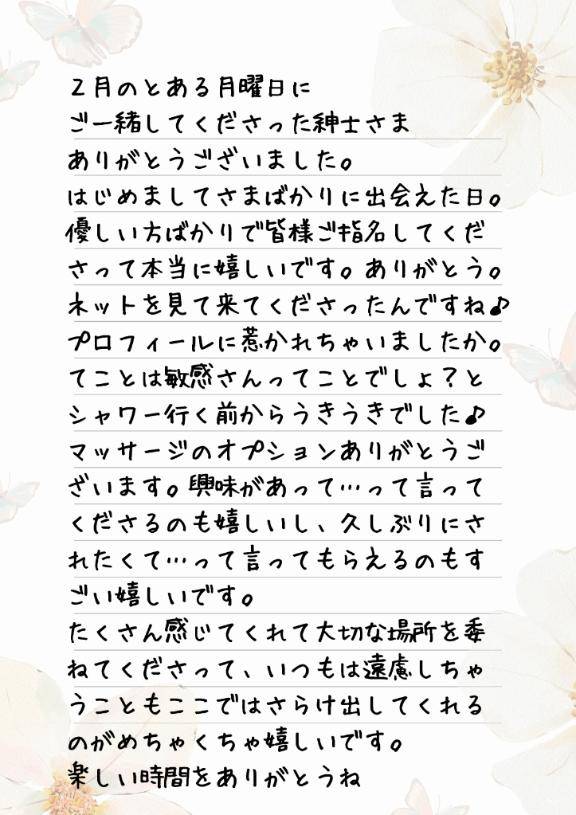 2月のとある月曜日に
ご一緒してくださった紳士さま
ありがとうございました。
はじめましてさまばかりに出会えた日。
優しい方ばかりで皆様ご指名してくだ
さって本当に嬉しいです。ありがとう。
ネットを見て来てくださったんですね♪
プロフィールに惹かれちゃいましたか。
てことは敏感さんってことでしょ?と
シャワー行く前からうきうきでした♪
マッサージのオプションありがとうご
ざいます。興味があって…って言って
くださるのも嬉しいし、久しぶりにさ
れたくて…って言ってもらえるのもす
ごい嬉しいです。
たくさん感じてくれて大切な場所を委
ねてくださって、いつもは遠慮しちゃ
うこともここではさらけ出してくれる
のがめちゃくちゃ嬉しいです。
楽しい時間をありがとうね